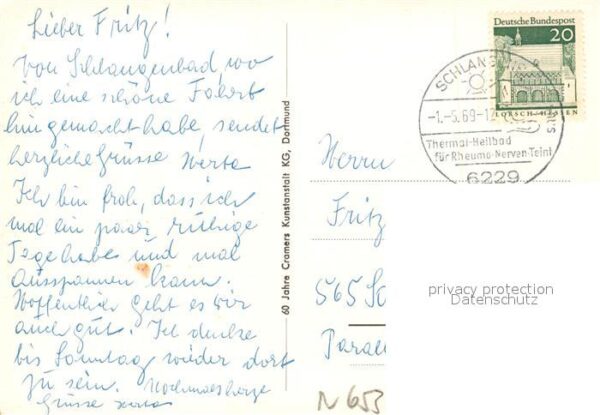 Lieber Fritz!
Von Schlangenbad, wo
ich eine schöne Fahrt
hin gemacht habe, sendet
herzliche Grüsse Werta
Ich bin froh, dass ich
mal ein paar ruhige
Tage habe und mal
ausspannen kann.
Hoffentlich geht es wir
auch gut. Ich denke
bis Sonntag wieder dort
zu sein. Nochmals herzl
Grüsse Werta
60 Jahre Cramers Kunstanstalt KG, Dortmund
Deutsche Bundespost
20
LORSCH-HESSEN
SCHLANG
-1.-5.69-1
Thermal-Heilbad
für Rheuma-Nerven-Teint
6229
Herrn
Fritz
565 So
Paral
privacy protection
Datenschutz
N 653